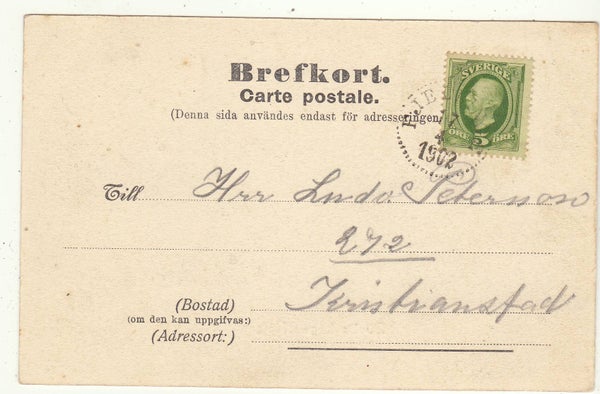 Brefkort.
Carte postale.
(Denna sida användes endast för adresseringen
SVERIGE
ÖRE 5 ÖRE
1902
Till Herr Ludv. Peterson
272
(Bostad)
(om den kan uppgifvas:)
Kristianstad
(Adressort:)